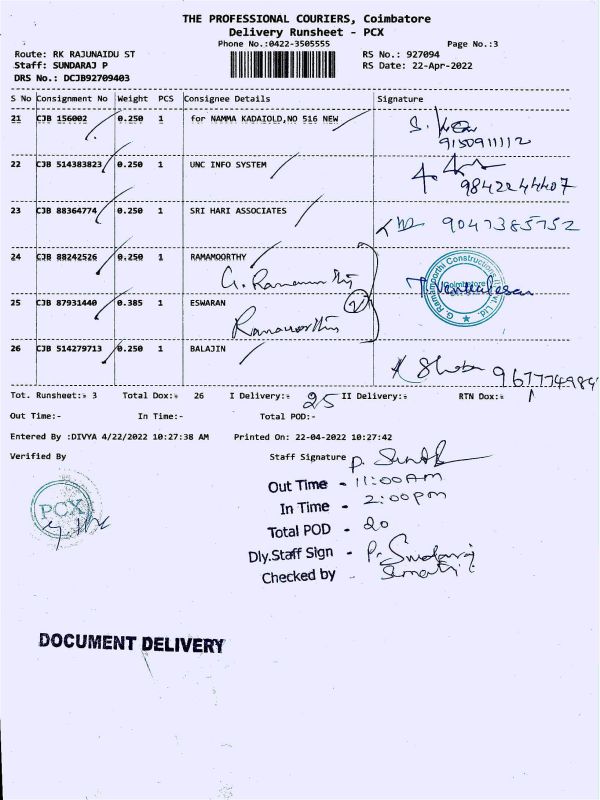 THE PROFESSIONAL COURIERS, Coimbatore
Delivery Runsheet - PCX
Phone No.:0422-3505555
Page No.:3
Route: RK RAJUNAIDU ST
RS No.: 927094
Staff: SUNDARAJ P
RS Date: 22-Apr-2022
DRS No.: DCJB92709403
S No Consignment No Weight PCS Consignee Details Signature
21 CJB 156002 0.250 1 for NAMMA KADAIOLD,NO 516 NEW
9150911112
22 CJB 514383823 0.250 1 UNC INFO SYSTEM
9842244407
23 CJB 88364774 0.250 1 SRI HARI ASSOCIATES
9047385752
24 CJB 88242526 0.250 1 RAMAMOORTHY
G. Ramamoorthy
G. Ramamoorthi Constructions (I) Pvt. Ltd.
Coimbatore
25 CJB 87931440 0.385 1 ESWARAN
Ramamoorthy
26 CJB 514279713 0.250 1 BALAJIN
Tot. Runsheet:- 3 Total Dox:- 26 I Delivery:- 25 II Delivery:- RTN Dox:- 1
Out Time:- In Time:- Total POD:-
Entered By :DIVYA 4/22/2022 10:27:38 AM Printed On: 22-04-2022 10:27:42
Verified By
Staff Signature
PCX
Out Time - 11:00 Am
In Time - 2:00 pm
Total POD - 20
Dly.Staff Sign - P. Sundaraj
Checked by -
DOCUMENT DELIVERY